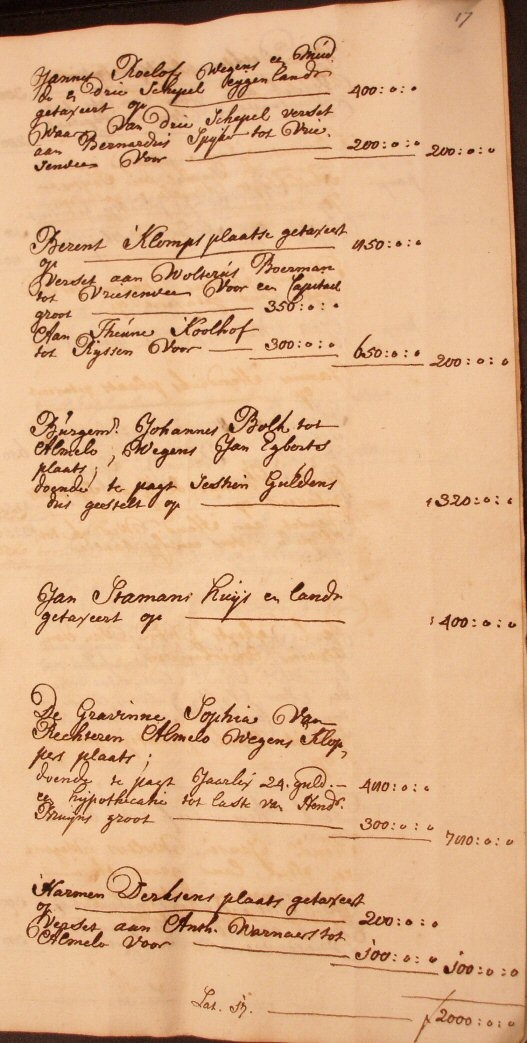 17
Jannes Roelofs Wegens een Mud
de en drie Schepel eygen landt
getaxeert op 400:0:0
Waar Van drie Schepel verset
aan Bernardus Spyker tot Vrie-
senveen Voor 200:0:0 200:0:0
Berent Klomps plaatse getaxeert
op 850:0:0
Verset aan Wolterus Boerman
tot Vriesenveen Voor een Capitaal
groot 350:0:0
Aan Theune Koolhof
tot Ryssen Voor 300:0:0 650:0:0 200:0:0
Burgemr. Johannes Bolk tot
Almelo, Wegens Jan Egberts
plaats;
doende te pagt Sesthin Guldens
dus gestelt op 320:0:0
Jan Stamans huijs en landt
getaxeert op 400:0:0
De Gravinne Sophia Van
Rechteren Almelo Wegens Klop-
pers plaats;
doende te pagt Jaarlix 24 guld:— 480:0:0
en hypothecatie tot laste van Hendr.
Kruijs groot 300:0:0 780:0:0
Harmen Derksens plaats getaxeert
op 200:0:0
Verset aan Anth. Warnaers tot
Almelo Voor 100:0:0 100:0:0
Lat. 17. ƒ2000:0:0